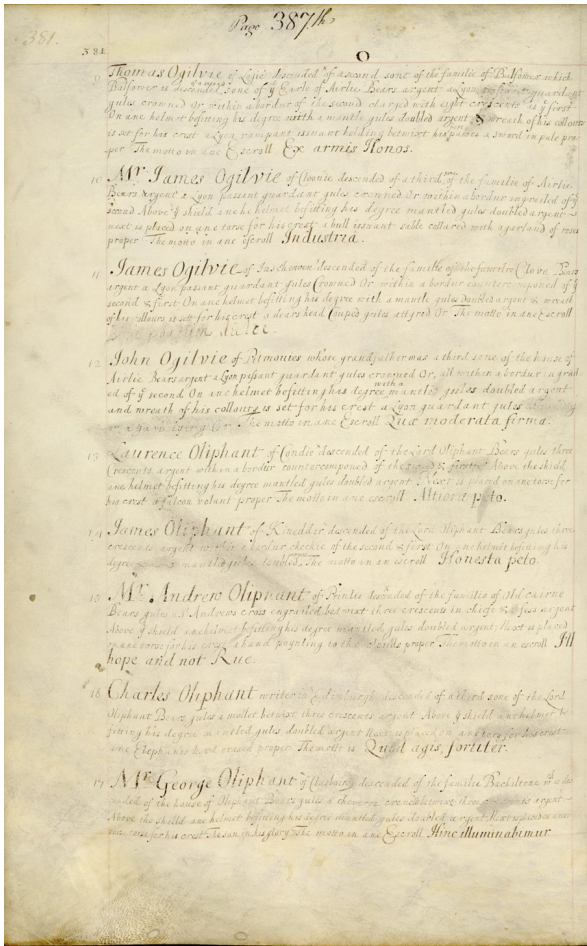 Page 387th
381.
381
O
9 Thomas Ogilvie of Logie descended of a second sone of the familie of Balfour which
Balfour is descended sone of ye Earle of Airlie Bears argent a Lyon passant guardant
gules crowned Or within a bordur of the second charged with eight crescents of ye first
On ane helmet befitting his degree with a mantle gules doubled argent & wreath of his collours
is set for his crest a Lyon rampant issuant holding betwixt his pawes a sword in pale pro
per The motto in ane Escroll Ex armis Honos.
10 Mr James Ogilvie of Clounie descended of a third of the familie of Airlie
Bears argent a Lyon passant guardant gules crowned Or within a bordur ingrailed of ye
second Above ye shield ane helmet befitting his degree mantled gules doubled argent
next is placed on ane torse for his crest a bull issuant sable collared with a garland of roses
proper The motto in ane escroll Industria.
11 James Ogilvie of descended of the familie of Clova Bears
argent a Lyon passant guardant gules Crowned Or within a bordur countercomponed of ye
second & first On ane helmet befitting his degree with a mantle gules doubled argent & wreath
of his collours is set for his crest a dears head Couped gules attyred Or The motto in ane Escroll
12 John Ogilvie of whose grandfather was a third sone of the house of
Airlie Bears argent a Lyon passant guardant gules crowned Or, all within a bordur ingrail
ed of ye second On ane helmet befitting his degree with a mantle gules doubled argent
and wreath of his collours is set for his crest a Lyon guardant gules
The motto in ane Escroll Quæ moderata firma.
13 Laurence Oliphant of Condie descended of the Lord Oliphant Bears gules three
Crescents argent within a bordur countercomponed of the & first Above the shield
ane helmet befitting his degree mantled gules doubled argent Next is placed on ane torse for
his crest a falcon volant proper The motto in ane escroll Altiora peto.
14 James Oliphant of Kinedder descended of the Lord Oliphant Bears gules three
crescents argent within a bordur checkie of the second & first On ane helmet befitting his
degree mantled gules doubled The motto in an escroll Honesta peto
15 Mr Andrew Oliphant of descended of the familie of Old cairne
Bears gules a St Andrews cross engrailed betwixt three crescents in chiefe & argent
Above ye shield ane helmet befitting his degree mantled gules doubled argent, Next is placed
on ane torse for his crest a hand poynting to the proper The motto in an escroll I'll
hope and not Rue.
16 Charles Oliphant writer in Edinburgh descended of a sone of the Lord
Oliphant Bears gules a mollet betwixt three crescents argent Above ye shield ane helmet be
fitting his degree mantled gules doubled argent Next is placed on ane torse for his crest
ane Elephants head erased proper The motto is Quod agis, fortiter.
17 Mr George Oliphant of descended of the familie Bachiltone
of the house of Oliphant Bears gules a cheveron betwixt three crescents argent
Above the shield ane helmet befitting his degree mantled gules doubled argent Next is placed on ane
torse for his crest The sun in his glory The motto in ane Escroll Hinc illuminabimur